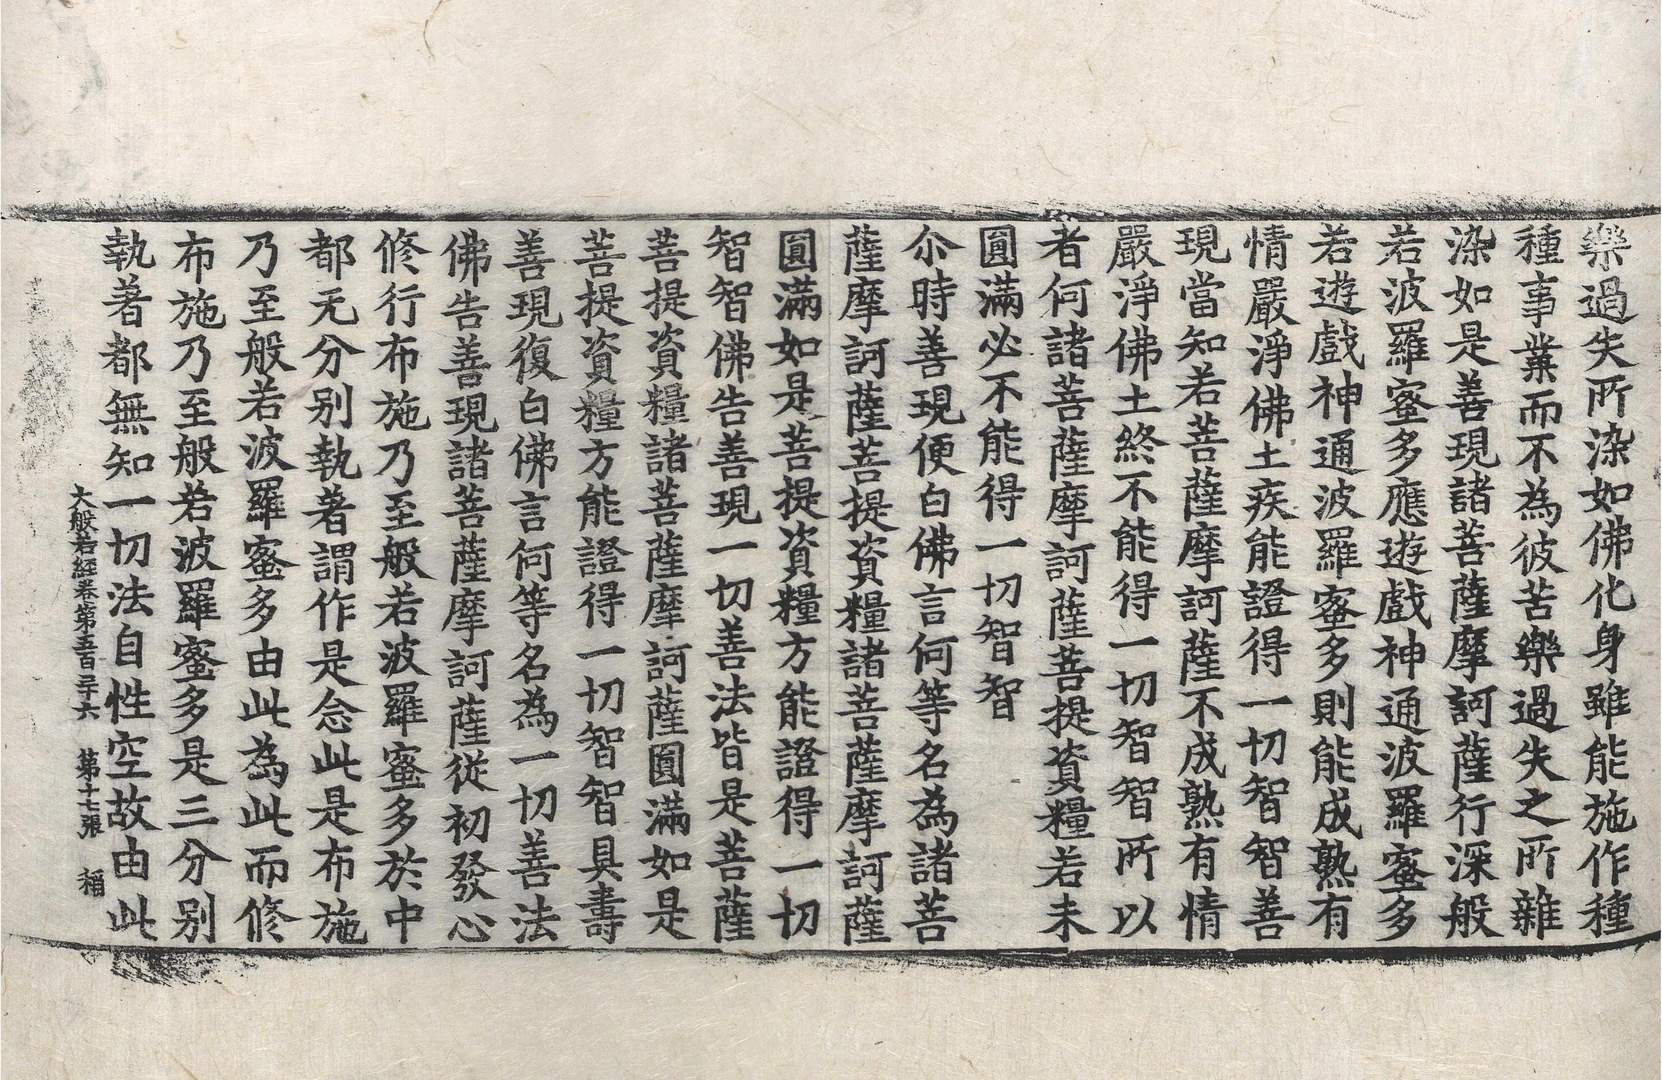 樂過失所染如佛化身雖能施作種
種事業而不為彼苦樂過失之所雜
染如是善現諸菩薩摩訶薩行深般
若波羅蜜多應遊戲神通波羅蜜多
若遊戲神通波羅蜜多則能成熟有
情嚴淨佛土疾能證得一切智智善
現當知若菩薩摩訶薩不成熟有情
嚴淨佛土終不能得一切智智所以
者何諸菩薩摩訶薩菩提資糧若未
圓滿必不能得一切智智
尒時善現便白佛言何等名為諸菩
薩摩訶薩菩提資糧諸菩薩摩訶薩
圓滿如是菩提資糧方能證得一切
智智佛告善現一切善法皆是菩薩
菩提資糧諸菩薩摩訶薩圓滿如是
菩提資糧方能證得一切智智具壽
善現復白佛言何等名為一切善法
佛告善現諸菩薩摩訶薩從初發心
修行布施乃至般若波羅蜜多於中
都无分別執著謂作是念此是布施
乃至般若波羅蜜多由此為此而修
布施乃至般若波羅蜜多是三分別
執著都無知一切法自性空故由此
大般若經卷第五百三十六 第十七張 稲